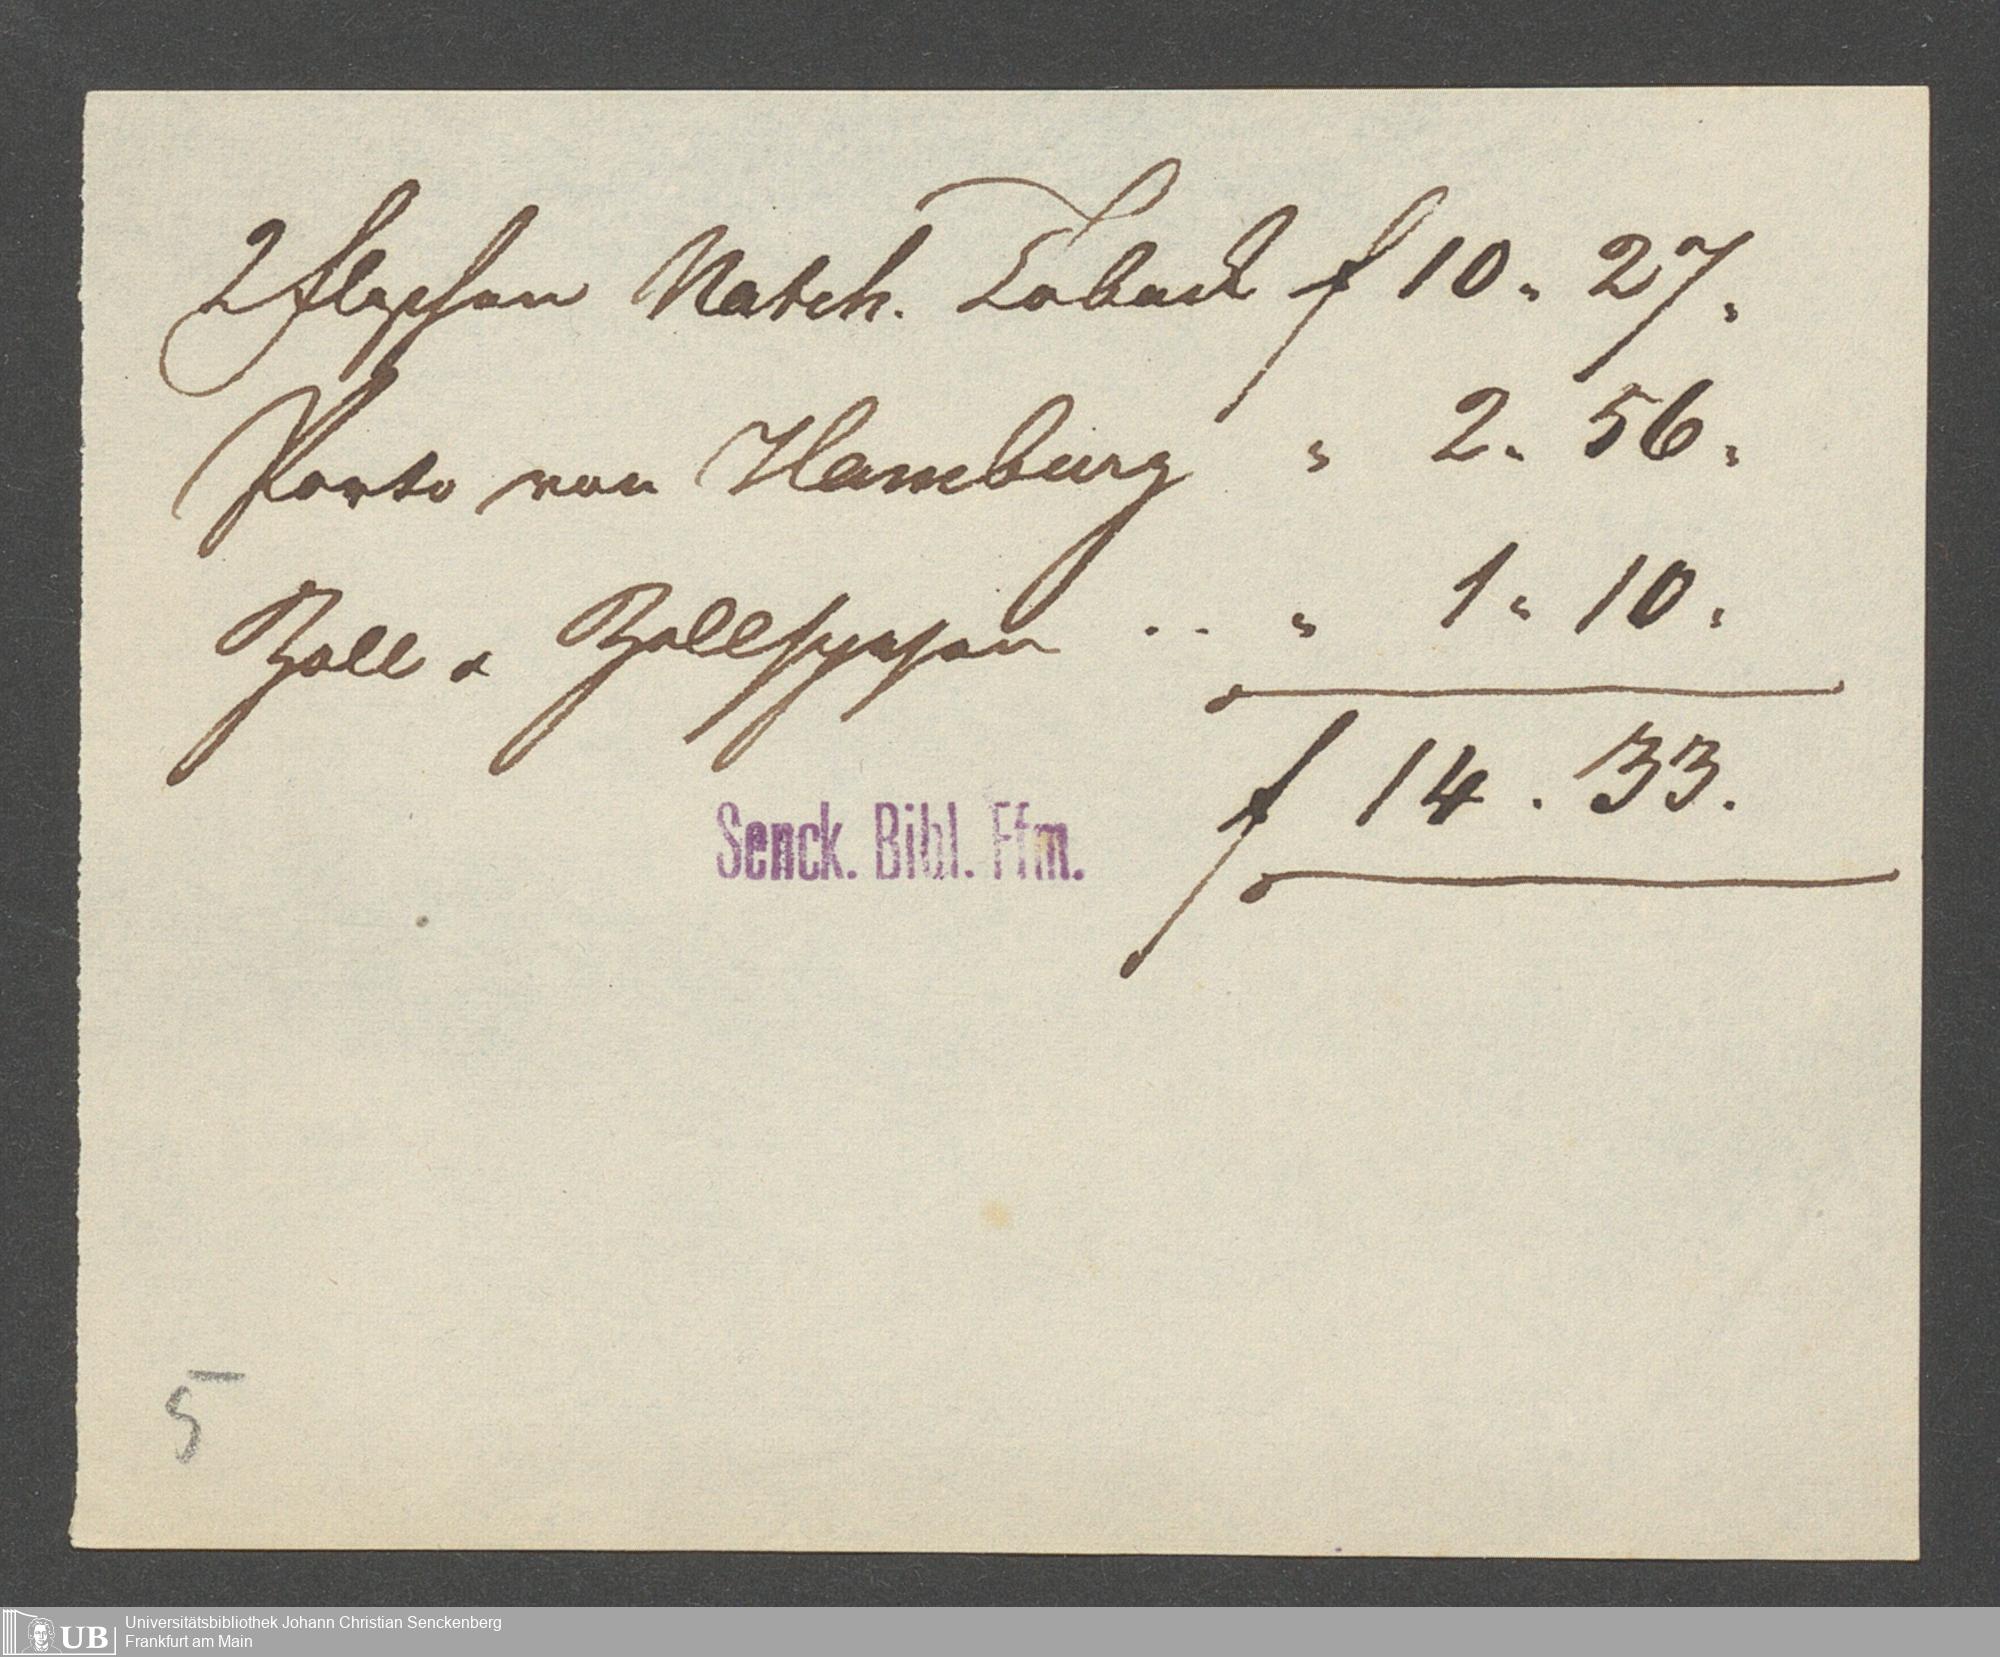 2 Flaschen Natch. Toback f 10. 27.
Porto von Hamburg " 2. 56.
Zoll & Zollspesen . . " 1. 10.
f 14. 33.
Senck. Bibl. Ffm.
5
UB
Universitätsbibliothek Johann Christian Senckenberg
Frankfurt am Main